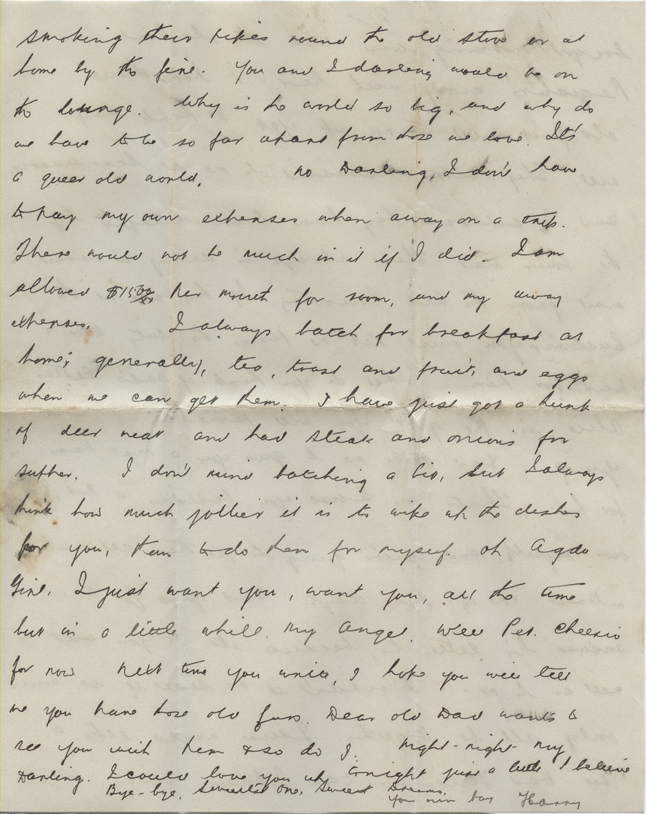 smoking their pipes round the old stove or at
home by the fire. You and I darling would be on
the lounge. Why is the world so big, and why do
we have to be so far apart from those we love. It's
a queer old world. No Darling, I don't have
to pay my own expenses when away on a trip.
There would not be much in it if I did. I am
allowed $15.00 per month for room, and my away
expenses. I always batch for breakfast at
home; generally, tea, toast and fruit, and eggs
when we can get them. I have just got a hunk
of deer meat and had steak and onions for
supper. I don't mind batching a bit, but I always
think how much jollier it is to wipe up the dishes
for you, than to do them for myself. Oh
Girl, I just want you, want you, all the time
but in a little while, My Angel. Wee Pet. Cheerio
for now Next time you write, I hope you will tell
me you have those old furs. Dear old Dad wants to
see you with them & so do I. Night-night My
Darling. I could love you up tonight just a little I believe
Bye-bye, Sweetest one, Sweet Dreams.
Your own boy Harry